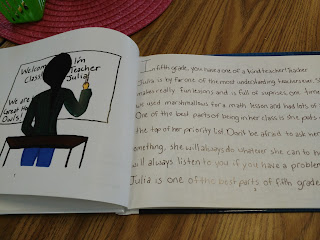 Welcome
Class!
We are
Great H
Owls!
I'm
Teacher
Julia
In fifth grade, you have a one of a kind teacher! Teacher
Julia is by far one of the most understanding teachers ever. S
makes really fun lessons and is full of suprices. One time
we used marshmallows for a math lesson and had lots of
One of the best parts of being in her class is she puts
the top of her priority list. Don't be afraid to ask her
something, she will always do whatever she can to h
will always listen to you if you have a problem
Julia is one of the best parts of fifth grade